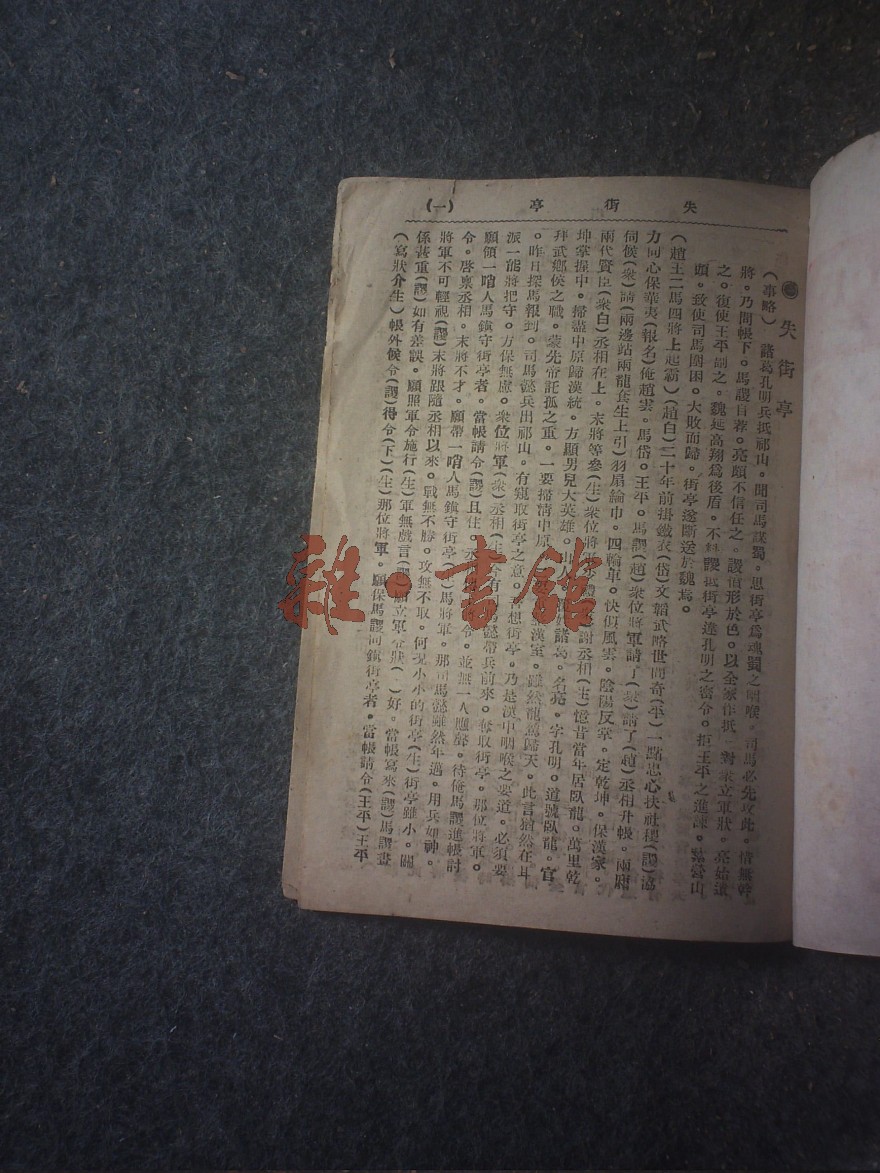 失街亭 (一)
失街亭
(事略) 諸葛孔明兵抵祁山。聞司馬謀蜀。思街亭爲魂蜀之咽喉。司馬必先攻此。惜無幹
將。乃問帳下。馬謖自薦。亮頗不信任之。謖憤形於色。以全家作抵。對衆立軍狀。亮始遣
之。復使王平副之。魏延高翔爲後盾。不料謖抵街亭違孔明之密令。拒王平之進諫。紮營山
頭。致使司馬圍困。大敗而歸。街亭遂斷送於魏焉。
(趙王二馬四將上起霸)(趙白)二十年前掛鐵衣(岱)文韜武略世間奇(平)一點忠心扶社稷(謖)協
力同心保華夷(報名)俺趙雲。馬岱。王平。馬謖(趙)衆位將軍請了(衆)請了(趙)丞相升帳。兩廂
伺候(衆)請(兩邊站兩龍套生上引)羽扇綸巾。四輪車。快似風雲。陰陽反掌。定乾坤。保漢家。
兩代賢臣(衆白)丞相在上。末將等參(生)衆位將軍少禮 謝丞相(生)憶昔當年居臥龍。萬里乾
坤掌握中。掃盡中原歸漢統。方顯男兒大英雄。山 諸葛。名亮。字孔明。道號臥龍。官
拜武鄉侯之職。蒙先帝託孤之重。一要掃清中原 漢室。雖然龍駕歸天。此言猶然在耳
。昨日探馬報到。司馬懿兵出祁山。有窺取街亭之意。吾想街亭。乃是漢中咽喉之要道。必須要
派一能將把守。方保無慮。衆位將軍(衆)丞相(生)今有司馬懿帶兵前來。奪取街亭。那位將軍。
願領一哨人馬鎭守街亭者。當帳請令(謖)且住。丞相 令。並無一人應聲。待俺馬謖進帳討
令。啓禀丞相。末將不才。願帶一哨人馬鎭守街亭(生)馬將軍。那司馬懿雖然年邁。用兵如神。
將軍不可輕視(謖)末將跟隨丞相以來。戰無不勝。攻無不取。何况小小的街亭(生)街亭雖小。關
係甚重(謖)如有差誤。願照軍令施行(生)軍無戲言(謖)願立軍令狀( )好。當帳寫來(謖)馬謖畫
(寫狀介生)帳外候令(謖)得令(下)(生)那位將軍。願保馬謖同鎭街亭者。當帳請令(王平)王平
雜·書館